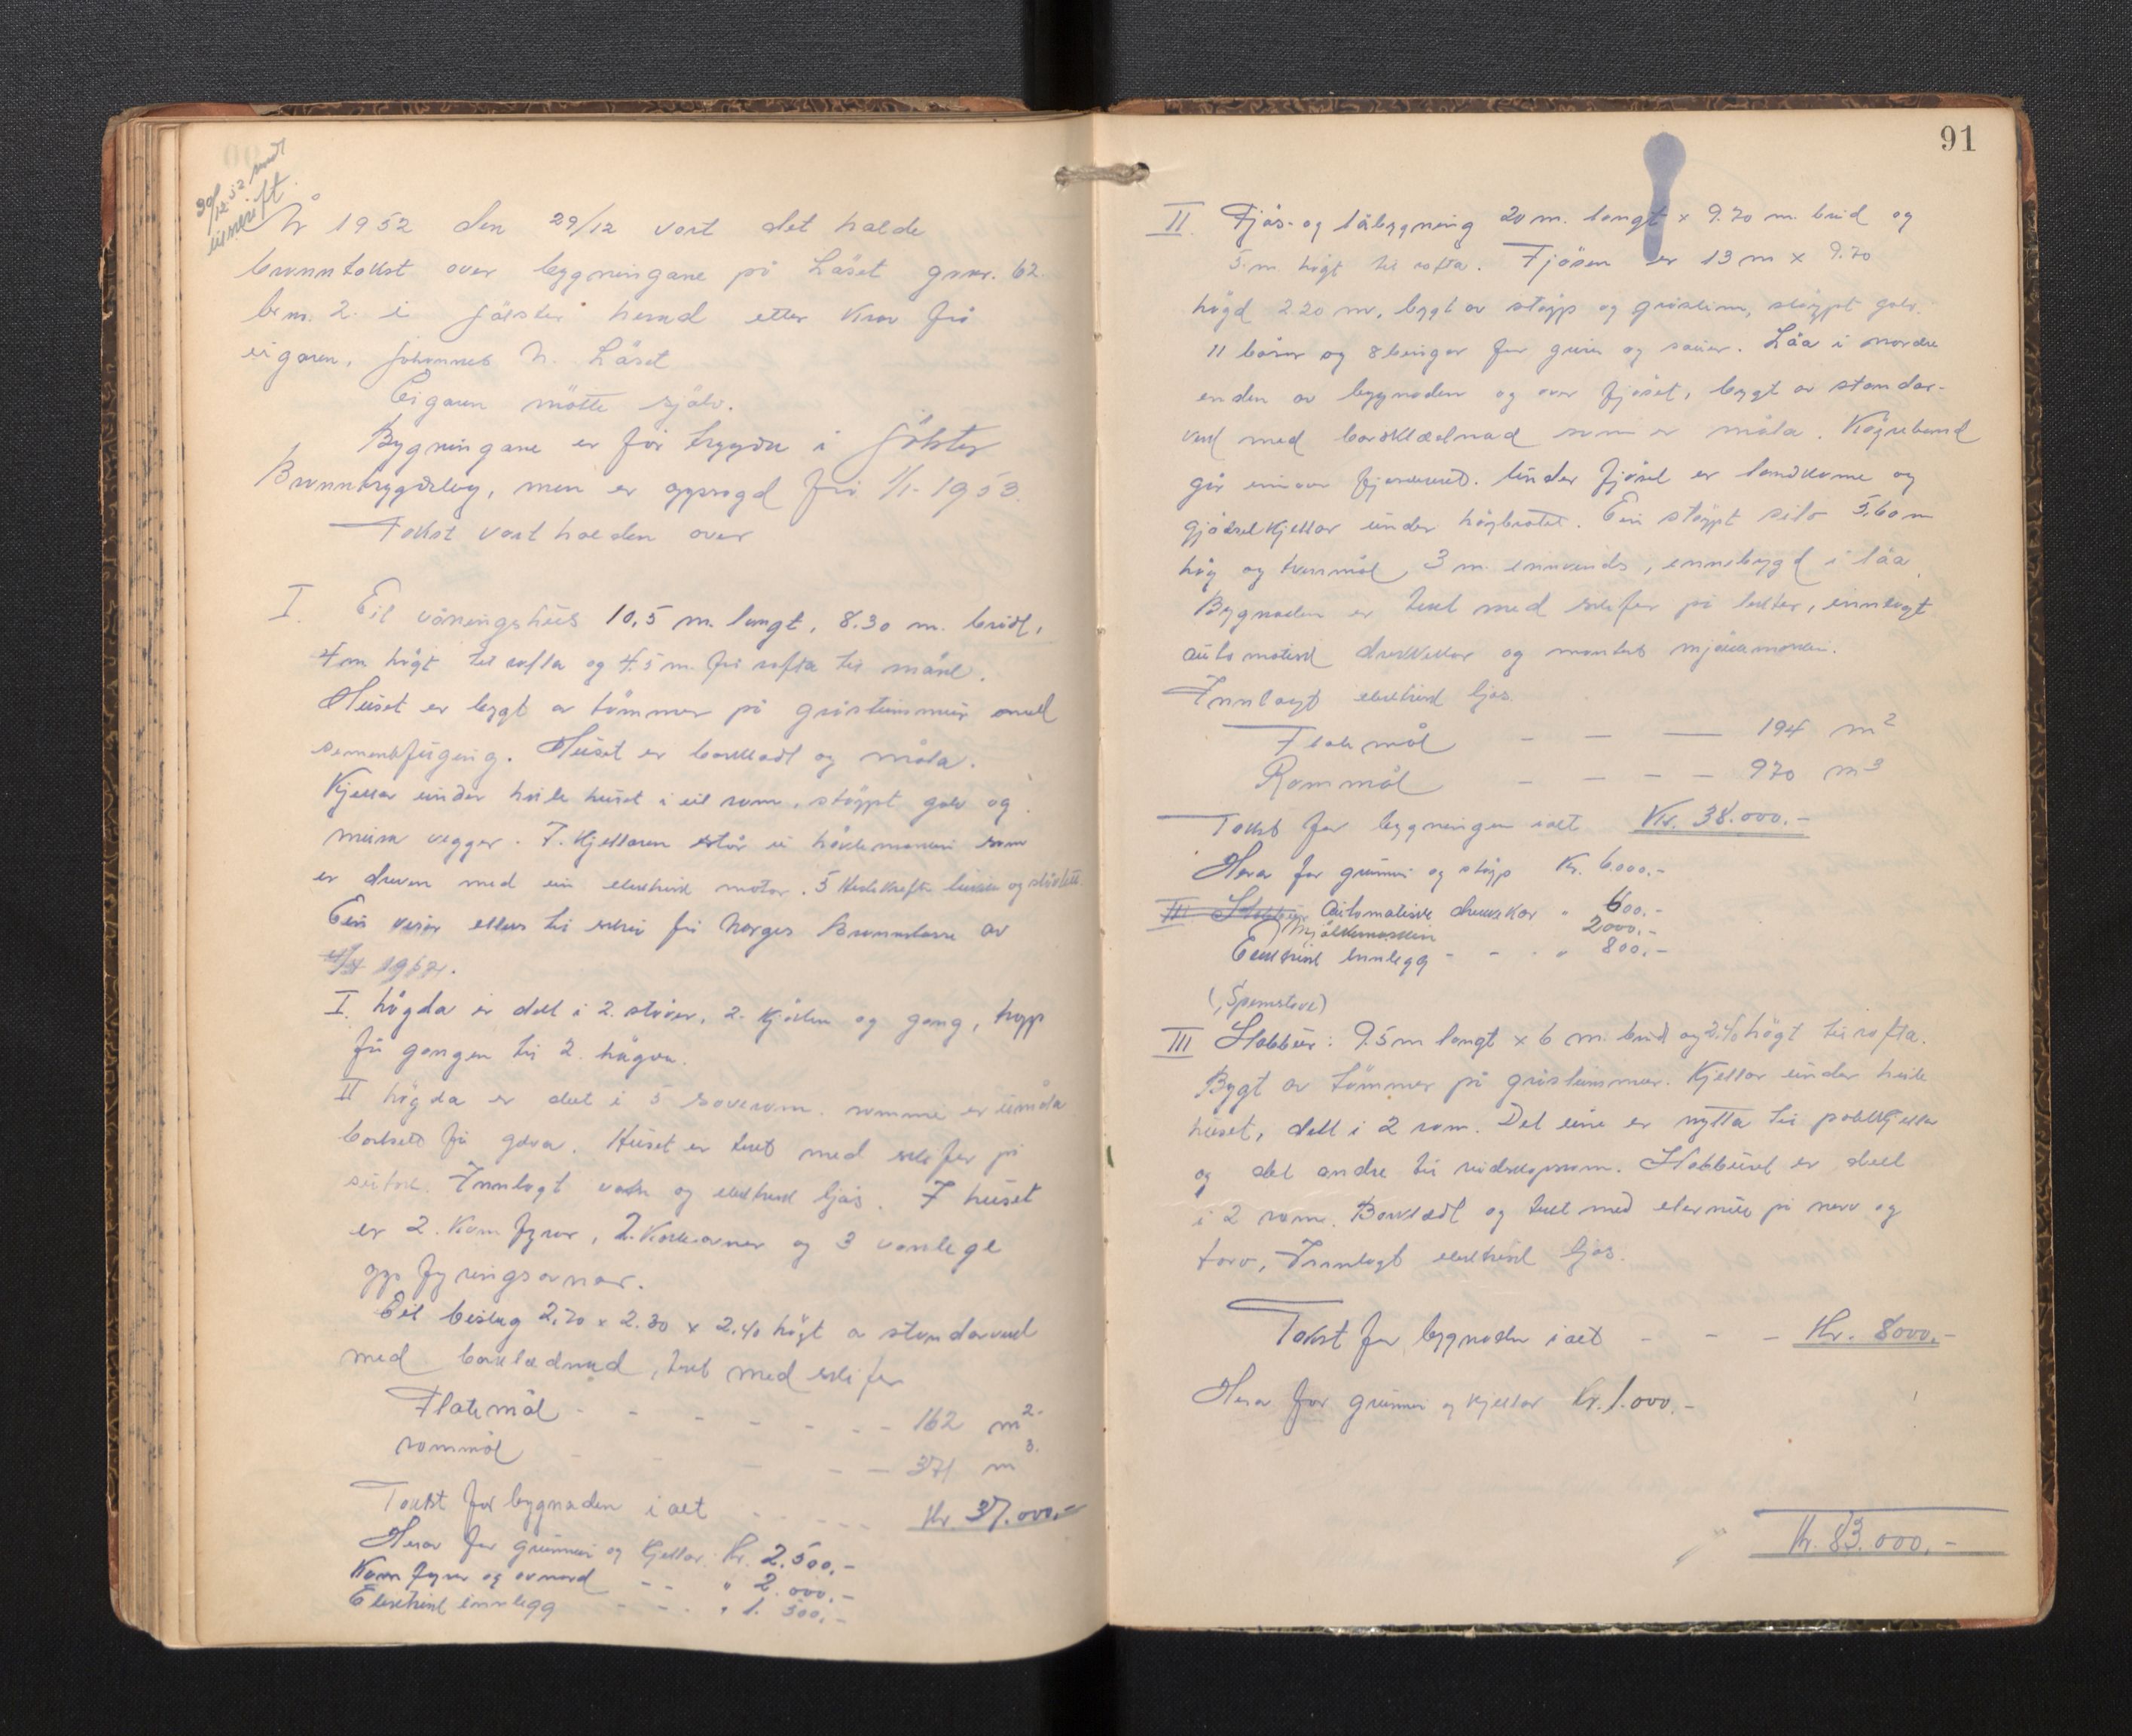 30/12 52 sendt
utskrift.
År 1952 den 29/12 vart det halde
branntakst over bygningane på Låset gnr. 62
br.nr. 2. i Jølster herad etter krav frå
eigaren, Johannes N. Låset
Eigaren møtte sjølv.
Bygningane er før trygda i Jølster
Branntrygdelag, men er oppsagd frå 1/1-1953.
Takst vart halden over
I. Eit våningshus 10,5 m. langt, 8.30 m. breidt,
4 m høgt til rafta og 4.5 m. frå rafta til møne.
Huset er bygt av tømmer på gråsteinmur med
sementfuging. Huset er bordkledt og måla.
Kjellar under heile huset i eit rom, støypt golv og
mura vegger. I kjellaren står ei
er dreven med ein elektrisk motor. 5 hestekrefter
Ein viser ellers til skriv frå Norges Brannkasse av
I. høgda er delt i 2. stover, 2. kjøken og gang, trapp
frå gangen til 2. høgda.
II høgda er delt i 5 soverom. romma er umåla
bortsett frå golva. Huset er tekt med skifer på
sutak. Innlagt vatn og elektrisk ljos. I huset
er 2. Komfyrar, 2. Kokeovner og 3 vanlege
oppfyringsovnar.
Eit bislag 2,70 x 2.30 x 2.40 høgt av standarverk
med bordklednad, tekt med skifer
Flatemål - - - - - - - 162 m2.
rommål - - - - - 371 m3.
Takst for bygnaden i alt - - - - - Kr. 37.000,-
Herav for grunnmur og kjellar. Kr. 2.500,-
Komfyrer og ovner - - " 2.000,-
Elektrisk innlegg - - - " 1.500,-
91
II. Fjøs- og løbygning 20 m. langt x 9.70 m. breid og
5. m. høgt til rafta. Fjøsen er 13 m x 9.70
høgd 2 20 m, bygt av støyp og gråstein, støypt golv.
11 båsar og 8 bingar for gris og sauer. Løa i nordre
enden av bygnaden og over fjøset, bygt av standar-
verk med bordklednad som er måla. Køyrebrud
går innover fjøset. Under fjøset er landkume og
gjødselkjellar under høybrotet. Ein støypt silo 5.60 m
høg og tverrmål 3 m. innvendes, innebygd i løa.
Bygnaden er tekt med skifer på lekter, innlagt
automatisk drikkekar og montert mjølkemaskin.
Innlagt elektrisk ljos.
Flatemål - - - 194 m2
Rommål - - - - 970 m3
Takst for bygningen i alt Kr. 38.000.-
Herav for grunnmur og støyp Kr. 6.000,-
III. Stabbur Automatisk drikkekar " 600.-
Mjølkemaskin 2000.-
Elektrisk innlegg - - - " 800.-
(Spenstove)
III Stabbur: 9.5 m langt x 6 m. breid og 2.40 høgt til rafta.
Bygt av tømmer på gråsteinmur. Kjellar under heile
huset, delt i 2 rom. Det eine er nytta til potetkjellar
og det andre til reidskapsrom. Stabburet er delt
i 2 rom. Bordkledt og tekt med eternitt på never og
torv, Innlagt elektrisk ljos.
Takst for bygnaden i alt - - - Kr. 8000.-
Herav for grunnmur og kjellar Kr. 1.000.-
Kr. 83.000,-